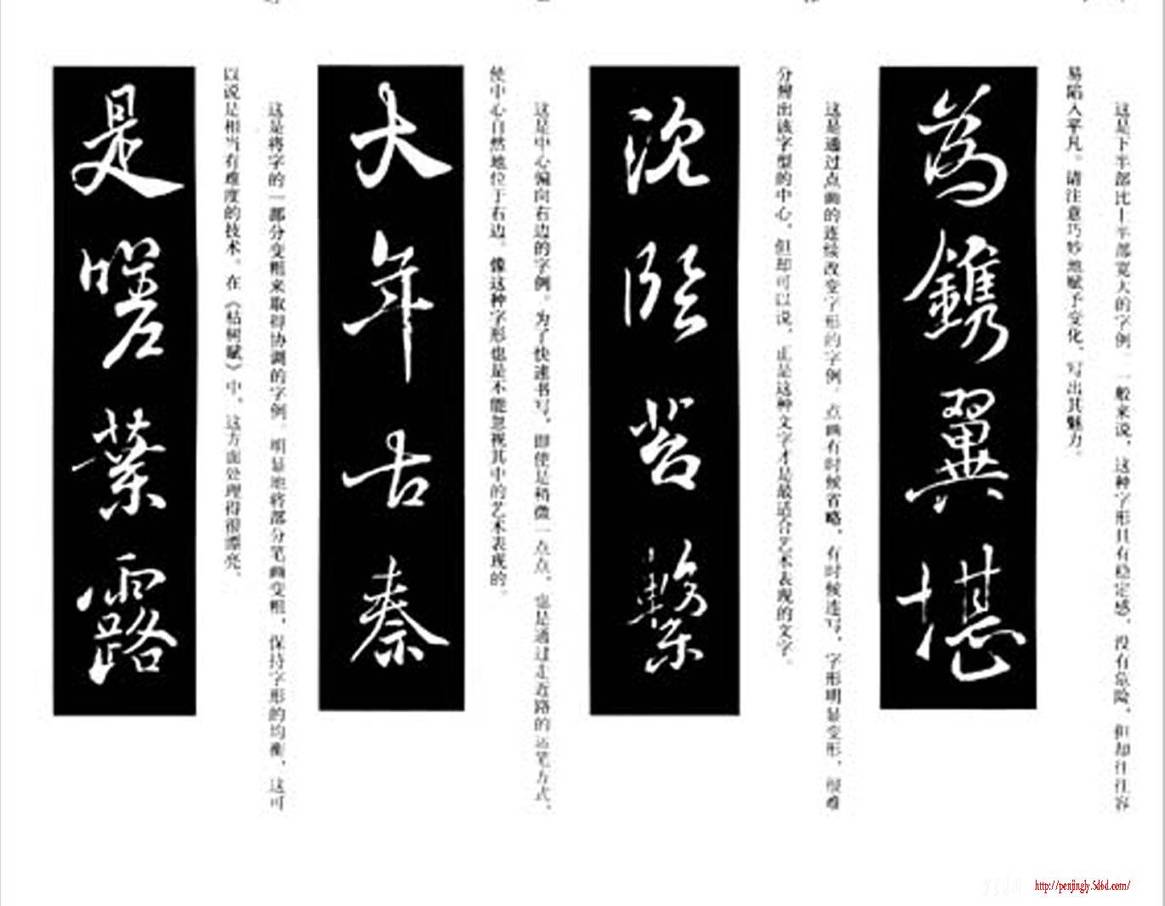 这是下半部比上半部宽大的字例。一般来说，这种字形具有稳定感，没有危险，但却往往容
易陷入平凡。请注意巧妙地赋予变化，写出其魅力。
為鐫翼堪
这是通过点画的连续改变字形的字例。点画有时候省略，有时候连写，字形明显变形，很难
分辨出该字型的中心，但却可以说，正是这种文字才是最适合艺术表现的文字。
沈
繫
这是中心偏向右边的字例。为了快速书写，即使是稍微一点点，也是通过走近路的运笔方式，
使中心自然地位于右边。像这种字形也是不能忽视其中的艺术表现的。
大年古秦
这是将字的一部分变粗来取得协调的字例。明显地将部分笔画变粗，保持字形的均衡，这可
以说是相当有难度的技术。在《枯树赋》中，这方面处理得很漂亮。
是嗟葉露
http://penjingly.5d6d.com/